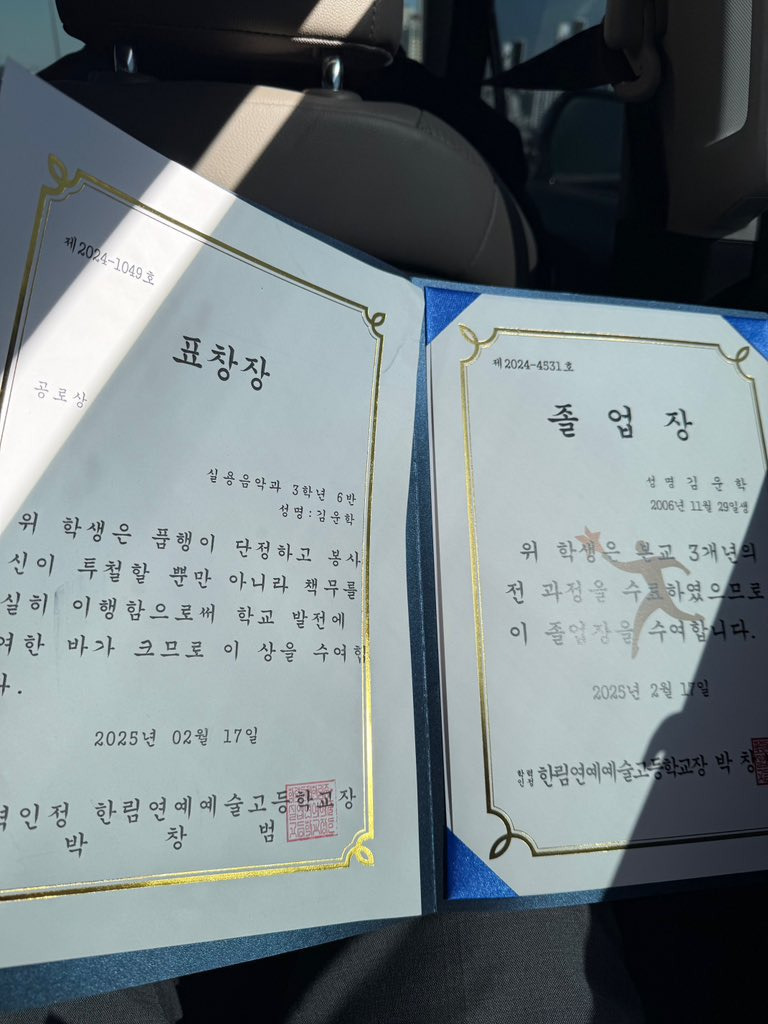 제2024-1049호
표창장
공로상
실용음악과 3학년 6반
성명:김운학
위 학생은 품행이 단정하고 봉사
신이 투철할 뿐만 아니라 책무를
실히 이행함으로써 학교 발전에
여한 바가 크므로 이 상을 수여합
다.
2025년 02월 17일
력인정 한림연예예술고등학교장
박 창 범
제2024-4531호
졸 업 장
성 명 김 운 학
2006년 11월 29일생
위 학생은 본교 3개년의
전 과정을 수료하였으므로
이 졸업장을 수여합니다.
2025년 2월 17일
학력인정 한림연예예술고등학교장 박 창